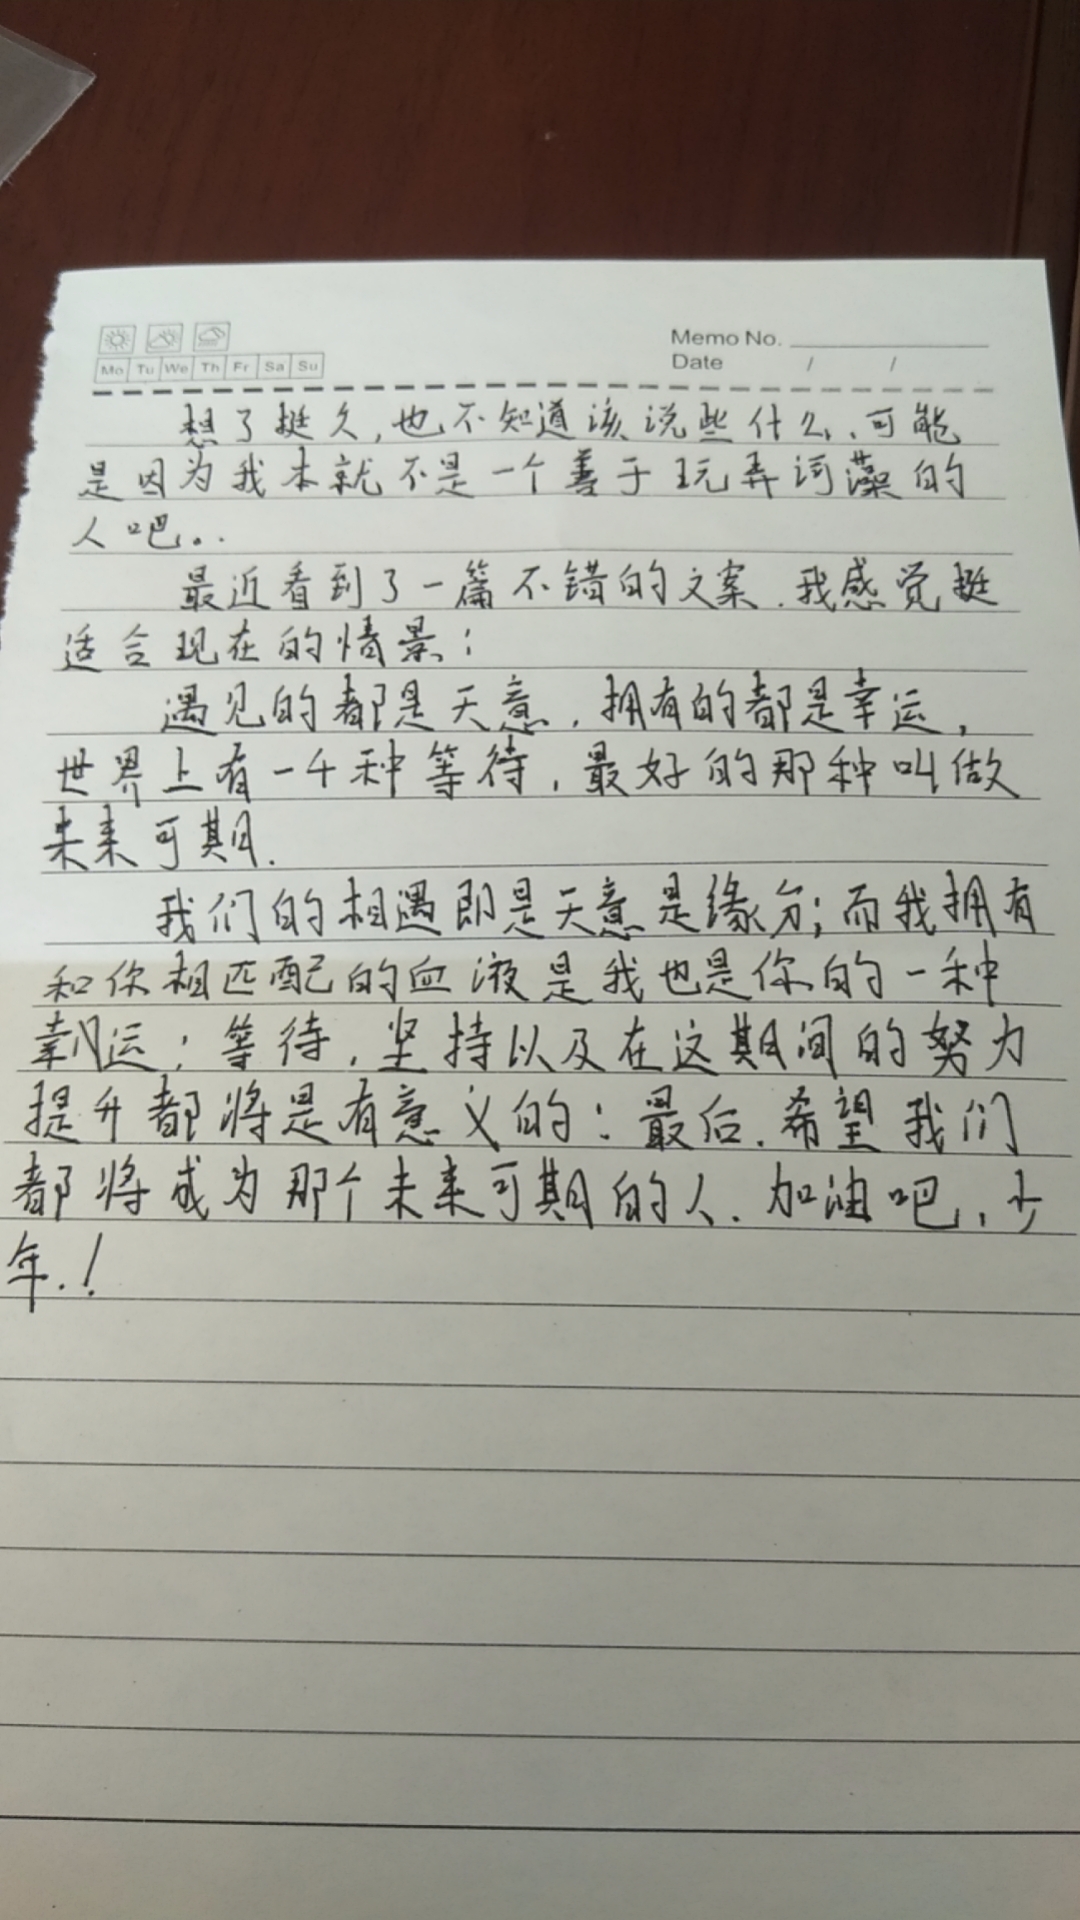 Memo No.
Mo Tu We Th Fr Sa Su
Date / /
想了挺久,也不知道该说些什么,可能
是因为我本就不是一个善于玩弄词藻的
人吧..
最近看到了一篇不错的文案.我感觉挺
适合现在的情景:
遇见的都是天意,拥有的都是幸运,
世界上有一千种等待,最好的那种叫做
未来可期.
我们的相遇即是天意是缘分;而我拥有
和你相匹配的血液是我也是你的一种
幸运;等待,坚持以及在这期间的努力
提升都将是有意义的;最后.希望我们
都将成为那个未来可期的人.加油吧,少
年.!